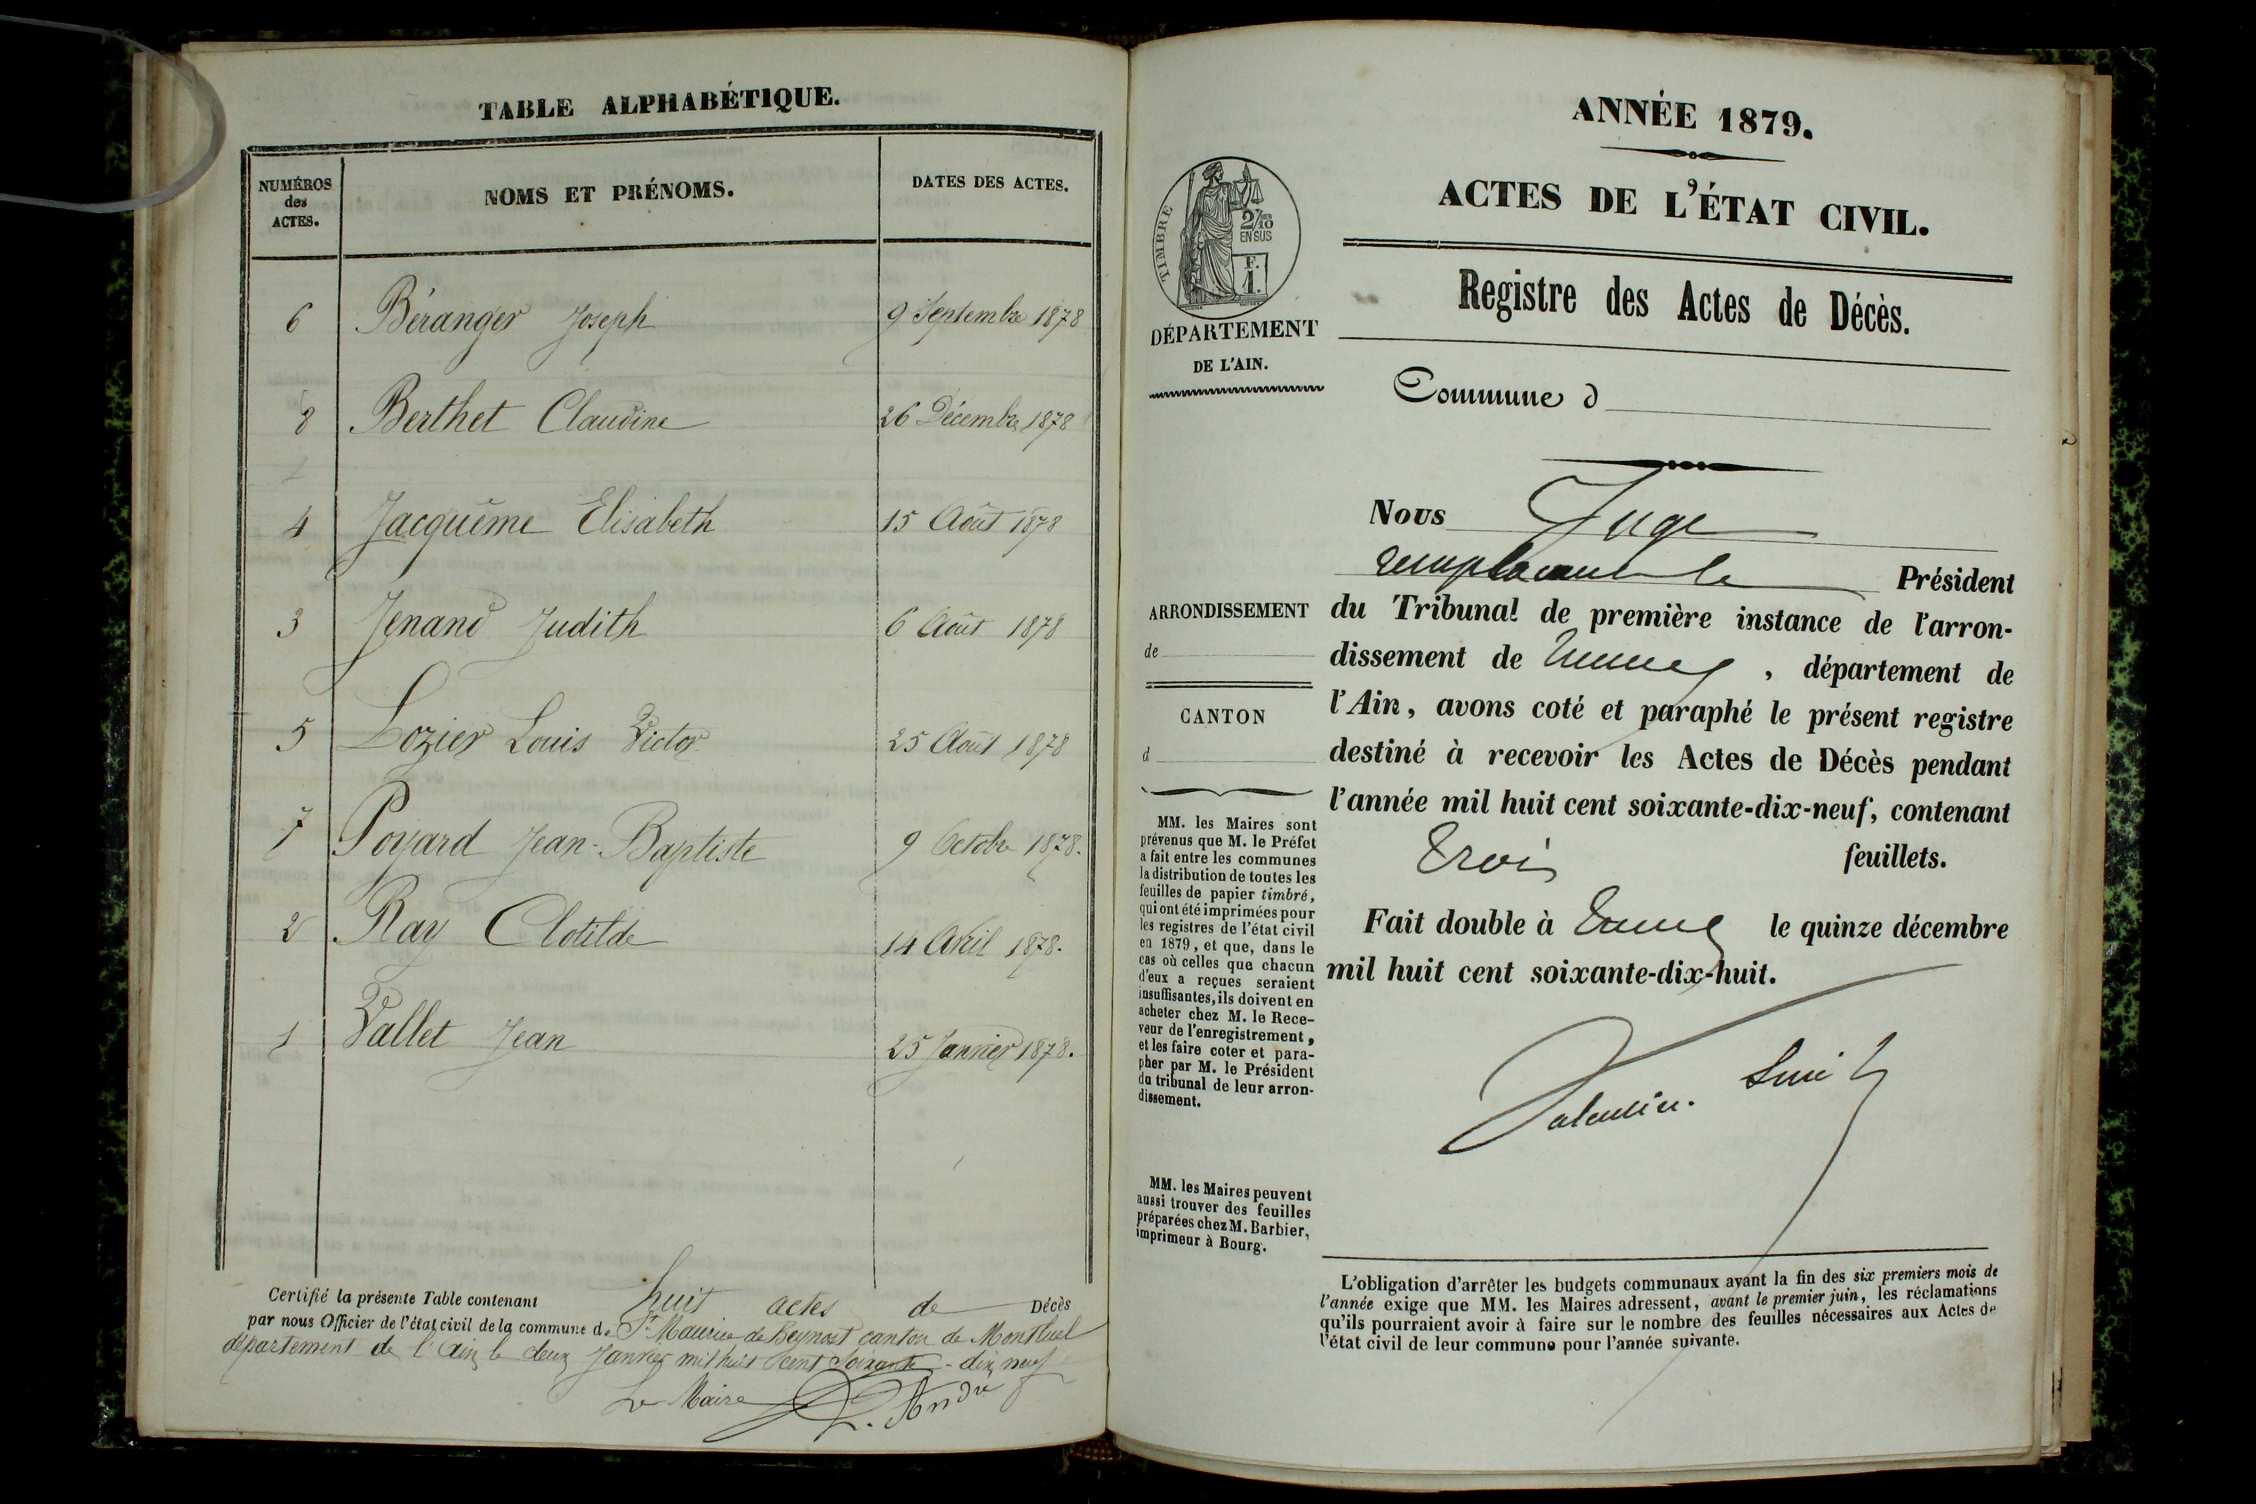 TABLE ALPHABÉTIQUE.
NUMÉROS des ACTES.
NOMS ET PRÉNOMS.
DATES DES ACTES.
6 Béranger Joseph 9 Septembre 1878
8 Berthet Claudine 26 Décembre 1878
4 Jacquême Elisabeth 15 Août 1878
3 Jenand Judith 6 Août 1878
5 Lozier Louis Victor 25 Août 1878
7 Poyard Jean-Baptiste 9 Octobre 1878.
2 Ray Clotilde 14 Avril 1878.
1 Vallet Jean 25 Janvier 1878.
Certifié la présente Table contenant huit actes de Décès
par nous Officier de l'état civil de la commune de St Maurice de Beynost canton de Montluel
département de l'Ain le deux Janvier mil huit cent soixante-dix neuf
Le Maire
André
ANNÉE 1879.
ACTES DE L'ÉTAT CIVIL.
Registre des Actes de Décès.
Commune d
TIMBRE
2/10
EN SUS
F.
1.
DÉPARTEMENT
DE L'AIN.
ARRONDISSEMENT
de
CANTON
d
MM. les Maires sont
prévenus que M. le Préfet
a fait entre les communes
la distribution de toutes les
feuilles de papier timbré,
qui ont été imprimées pour
les registres de l'état civil
en 1879, et que, dans le
cas où celles que chacun
d'eux a reçues seraient
insuffisantes, ils doivent en
acheter chez M. le Rece-
veur de l'enregistrement,
et les faire coter et para-
pher par M. le Président
du tribunal de leur arron-
dissement.
MM. les Maires peuvent
aussi trouver des feuilles
préparées chez M. Barbier,
imprimeur à Bourg.
Nous Juge
remplaçant le Président
du Tribunal de première instance de l'arron-
dissement de Trévoux, département de
l'Ain, avons coté et paraphé le présent registre
destiné à recevoir les Actes de Décès pendant
l'année mil huit cent soixante-dix-neuf, contenant
Trois feuillets.
Fait double à Trévoux le quinze décembre
mil huit cent soixante-dix-huit.
Valentin. Smith
L'obligation d'arrêter les budgets communaux avant la fin des six premiers mois de
l'année exige que MM. les Maires adressent, avant le premier juin, les réclamations
qu'ils pourraient avoir à faire sur le nombre des feuilles nécessaires aux Actes de
l'état civil de leur commune pour l'année suivante.